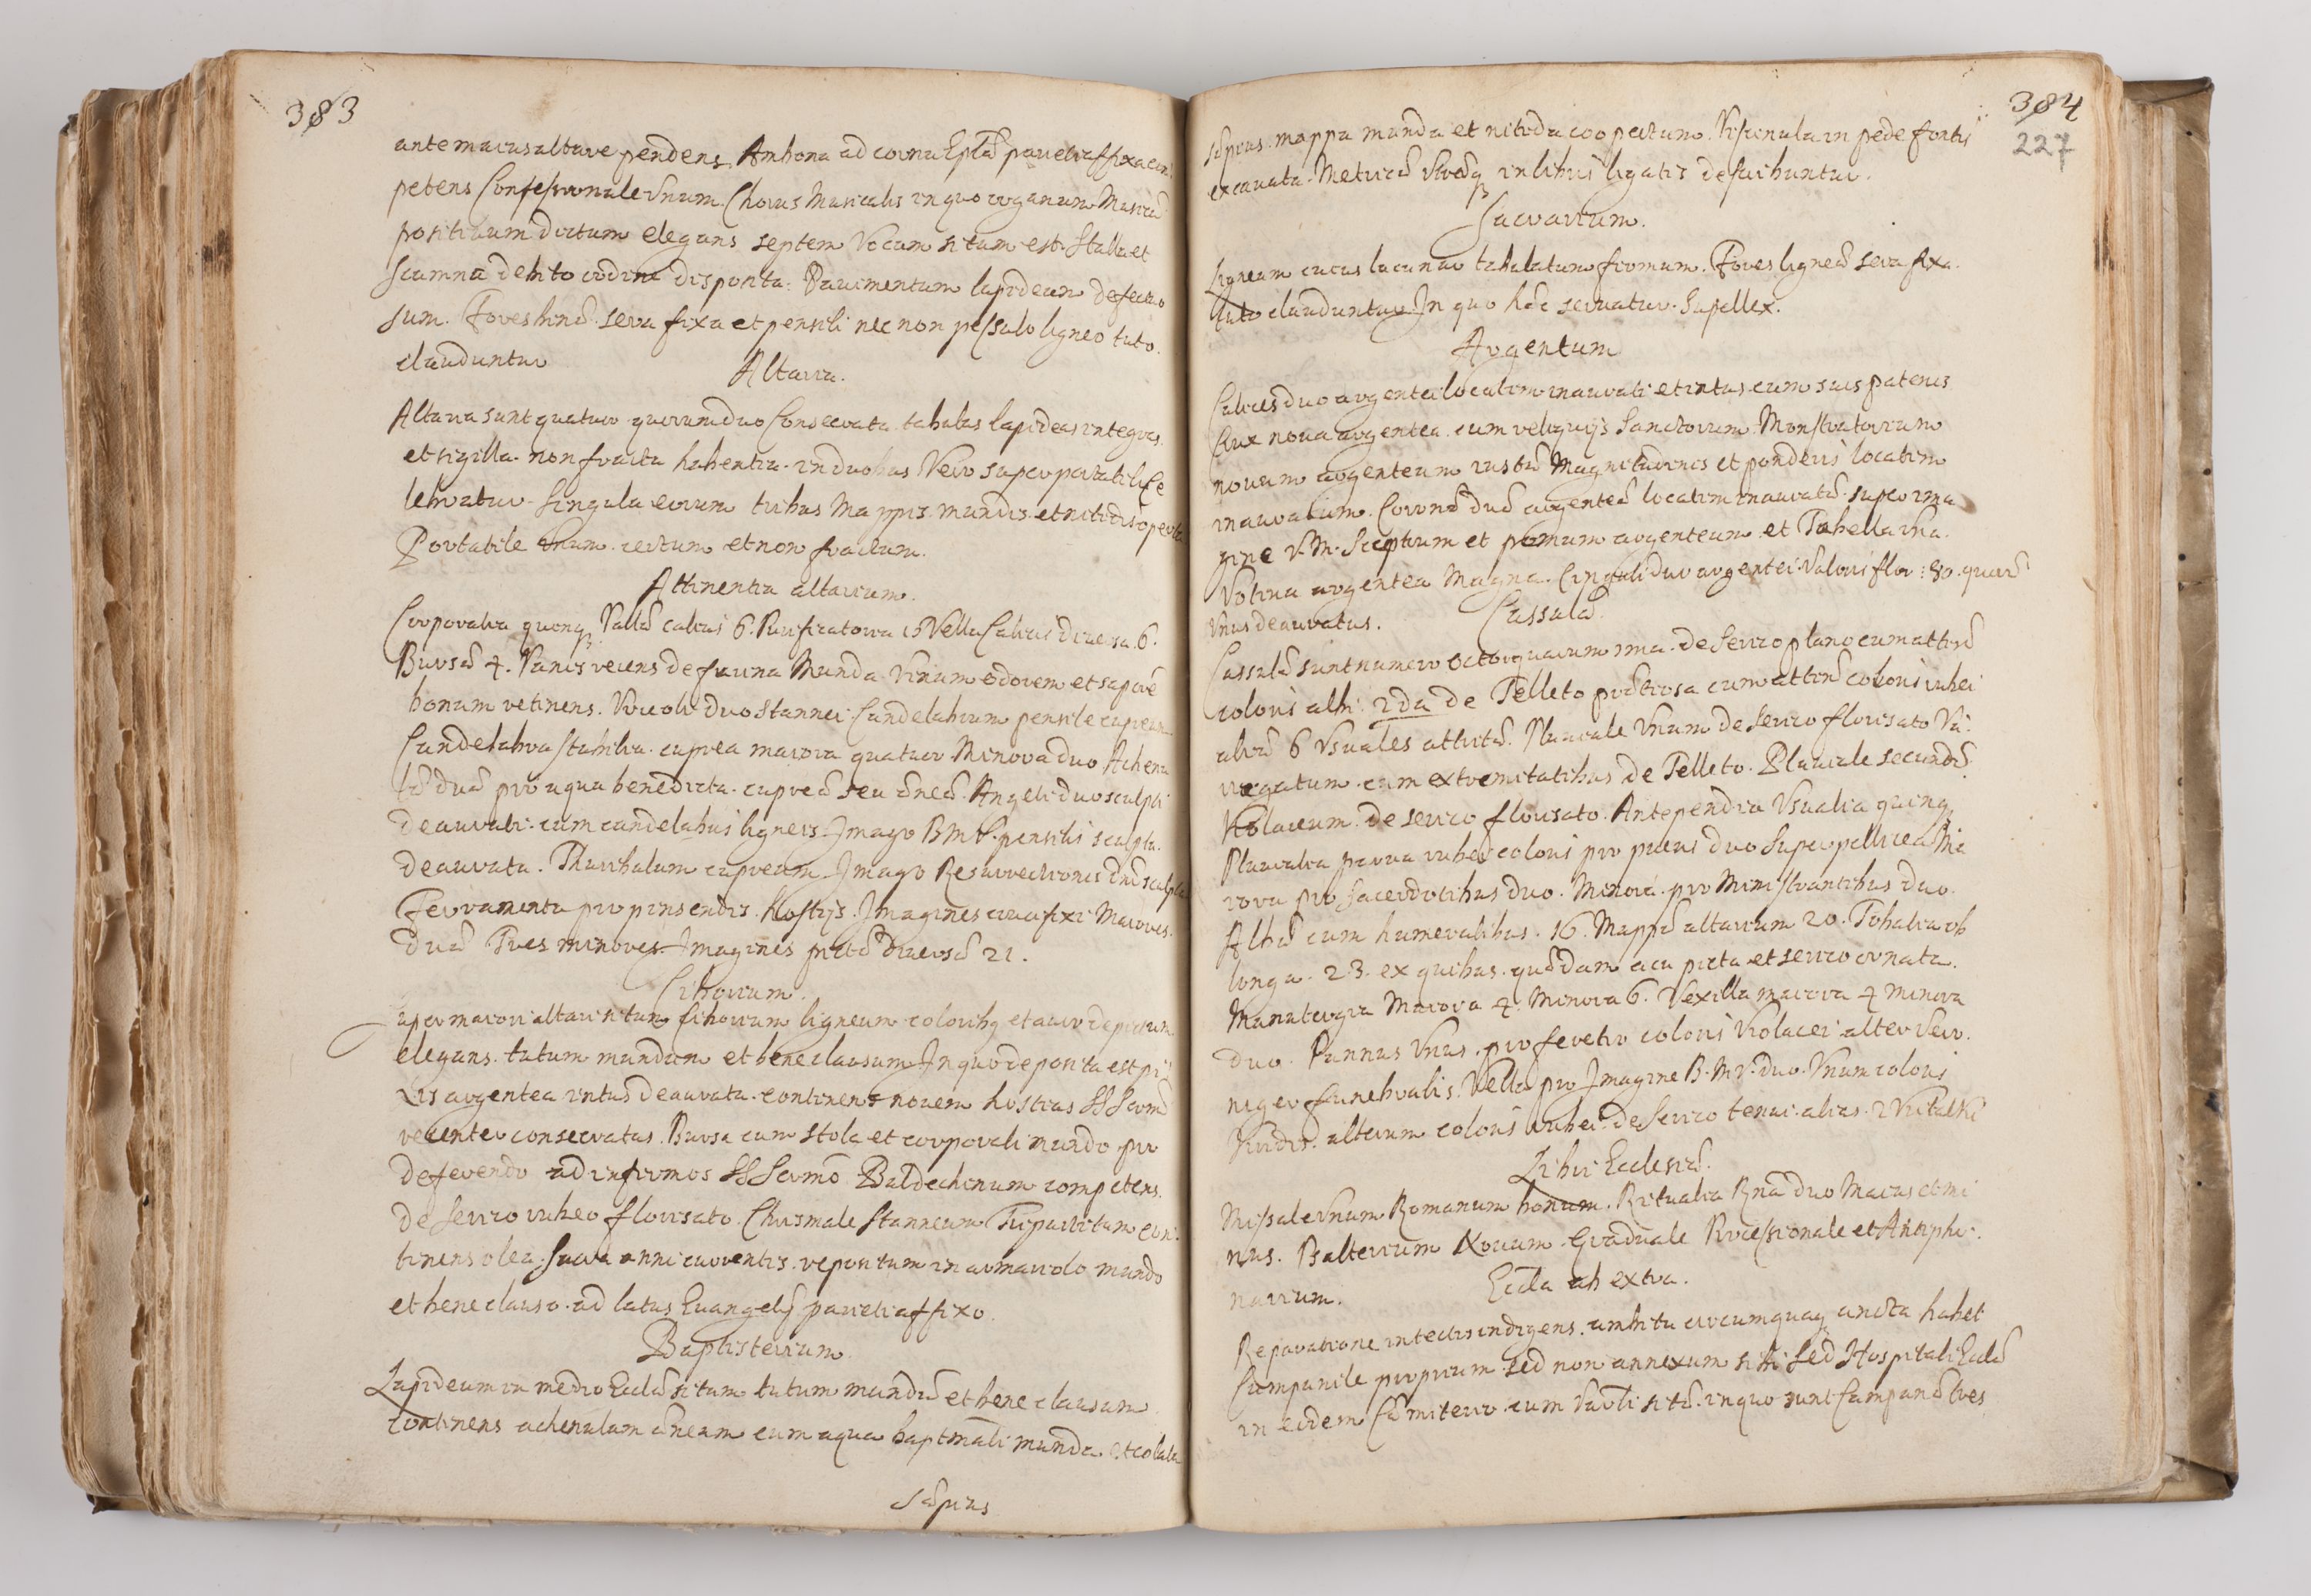 383
ante maius altare pendens. Ambona ad cornu Eplæ parieti affixa com
petens Confessionale Unum. Chorus Musicalis in quo organum Musicū
positiuum dictum elegans septem Vocum situm est. Stalla et
scamna debito ordine disposita. Pauimentum lapideum defectuo
sum. Fores binæ sera fixa et pensili nec non pessulo ligneo tuto
clauduntur
Altaria.
Altaria sunt quatuor quorum duo Consecrata tabulas lapideas integras
et sigilla non fracta habentia. in duobus Vero super portatili Ce
lebratur. Singula eorum tribus Mappis mundis et nitidis operta
Portatile Unum certum et non fractum.
Attinentia altarium.
Corporalia quinq₃ Pallæ calicis 6. Purificatoria 15 Vella Calicis diuersa 6.
Bursæ 4. Panis recens de farina Munda Vinum odorem et saporē
bonum retinens. Urceoli duo stannei Candelabrum pensile cupreum
Candelabra stabilia cuprea maiora quatuor Minora duo Achenu
læ duæ pro aqua benedicta cupreæ seu æneæ. Angeli duo sculpti
deaurati cum candelabris ligneis. Imago B M V. pensilis sculpta
deaurata. Thuribulum cupreum. Imago Resurrectionis dnī sculpta
Ferramenta pro pinsendis Hostijs. Imagines crucifixi Maiores
duæ Tres minores. Imagines pictæ diuersæ 21.
Ciborium.
Super maiori altari situm Ciborium ligneum coloribq et auro depictum
elegans tutum mundum et bene clausum In quo deposita est pi
xis argentea intus deaurata continens nouem hostias SS Scrm̄
recenter consecratas. Bursa cum stola et corporali mundo pro
deferendo ad infirmos SS Scrmō Baldechinum competens
de serico rubeo florisato. Chrismale stanneum Tripartitum con
tinens olea Sacra anni currentis repositum in armariolo mundo
et bene clauso ad latus Euangelij parieti affixo.
Baptisterium
Lapideum in medio Ecclæ situm tutum mundū et bene clausum
continens achenulam æneam cum aqua baptm̄ali munda et colata
sæpius
384
227
sæpius mappa munda et nitida coopertum. Piscinula in pede fontis
excauata. Metricæ Vtræq₃ in libris ligatis describuntur.
Sacrarium.
Ligneum cuius lacunar tabulatum firmum. Fores ligneæ sera fixa
tuto clauduntur. In quo hæc seruatur Supellex.
Argentum
Calices duo argentei locatim inaurati et intus cum suis patenis
Crux noua argentea cum reliquijs Sanctorum. Monstratorium
nouum argenteum iustæ Magnitudinis et ponderis locatim
inauratum. Coronæ duæ argenteæ locatim inauratæ super ima
gine V. M. Sceptrum et pomum argenteum et Tabella Una
Votiua argentea Magna. Cinguli duo argentei Valoris flor: 80 quorū
Unus deauratus.
Cassulæ
Cassulæ sunt numero octo quarum 1ma de serico plano cum attinē
coloris albi. 2da de Telleto prætiosa cum attinē coloris rubei
aliæ 6 Usuales attritæ. Pluuiale Unum de serico florisato Va
riegatum cum extremitatibus de Telleto. Pluuiale secundū
Violaceum de serico florisato. Antependia Usualia quinq₃
Pluuialia parua rubei coloris pro pueris duo Superpellicea Ma
iora pro sacerdotibus duo. Minora pro Ministrantibus duo.
Albæ cum humeralibus 16. Mappæ altarium 20. Tobalia ob
longa 23. ex quibus quædam acu picta et serico ornata.
Manutergia Maiora 4. Minora 6. Vexilla maiora 4 minora
duo. Pannus Unus pro feretro coloris Violacei alter Vero
niger funebralis. Vella pro Imagine B. M. V. duo. Unum coloris
Viridis alterum coloris rubei de serico tenui
Libri Ecclesiæ.
Missale Unum Romanum bonum. Ritualia Rnā duo Maius et mi
nus. Psalterium Nouum Graduale Processionale et Antipho
narium.
Eccla ab extra.
Reparatione in tectis indigens ambitu circumquaq₃ cincta habet
Campanile proprium sed non annexum sibi sed Hospitali Ecclæ
in eodem Cæmiterio cum sitæ in quo sunt Campanæ tres